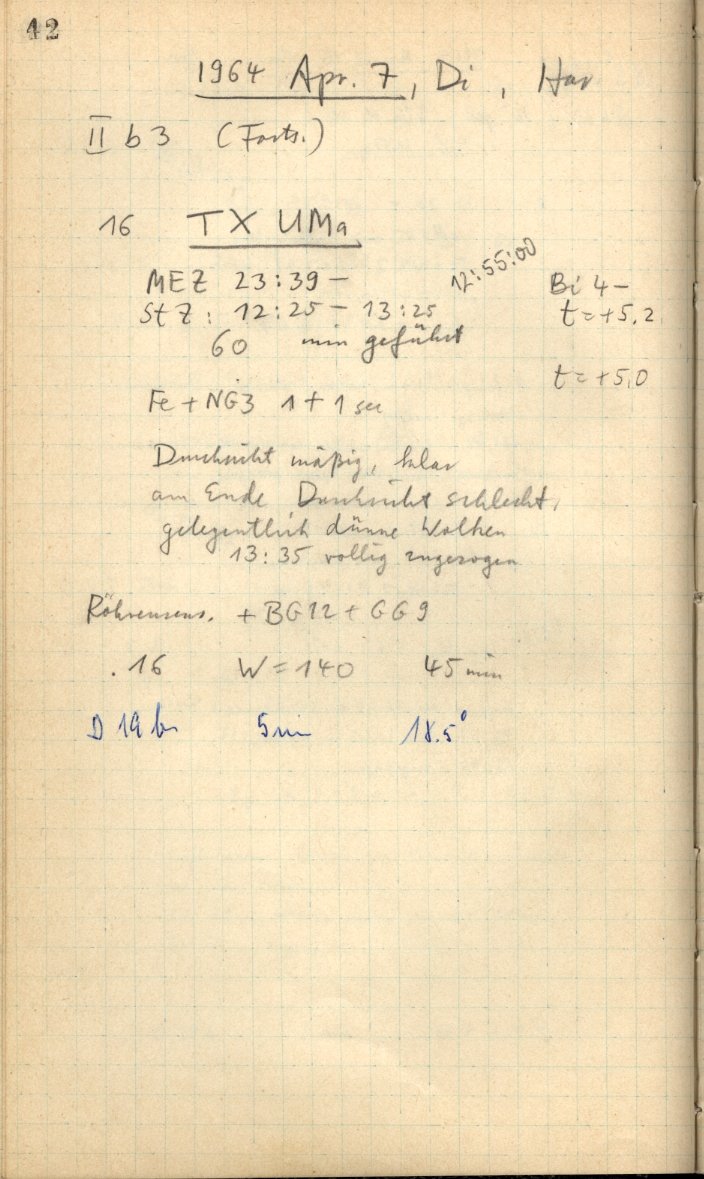 42
1964 Apr. 7, Di, Har
II b 3 (Forts.)
16 TX UMa
MEZ 23:39 – 12:55:00 Bi 4–
St Z: 12:25 – 13:25 t = +5,2
60 min geführt
t = +5,0
Fe + NG3 1 + 1 sec
Durchsicht mäßig, klar
am Ende Durchsicht schlecht,
gelegentlich dünne Wolken
13:35 völlig zugezogen
Röhrensens. + BG12 + GG9
. 16 W = 140 45 min
D 19 b 5 min 18.5°